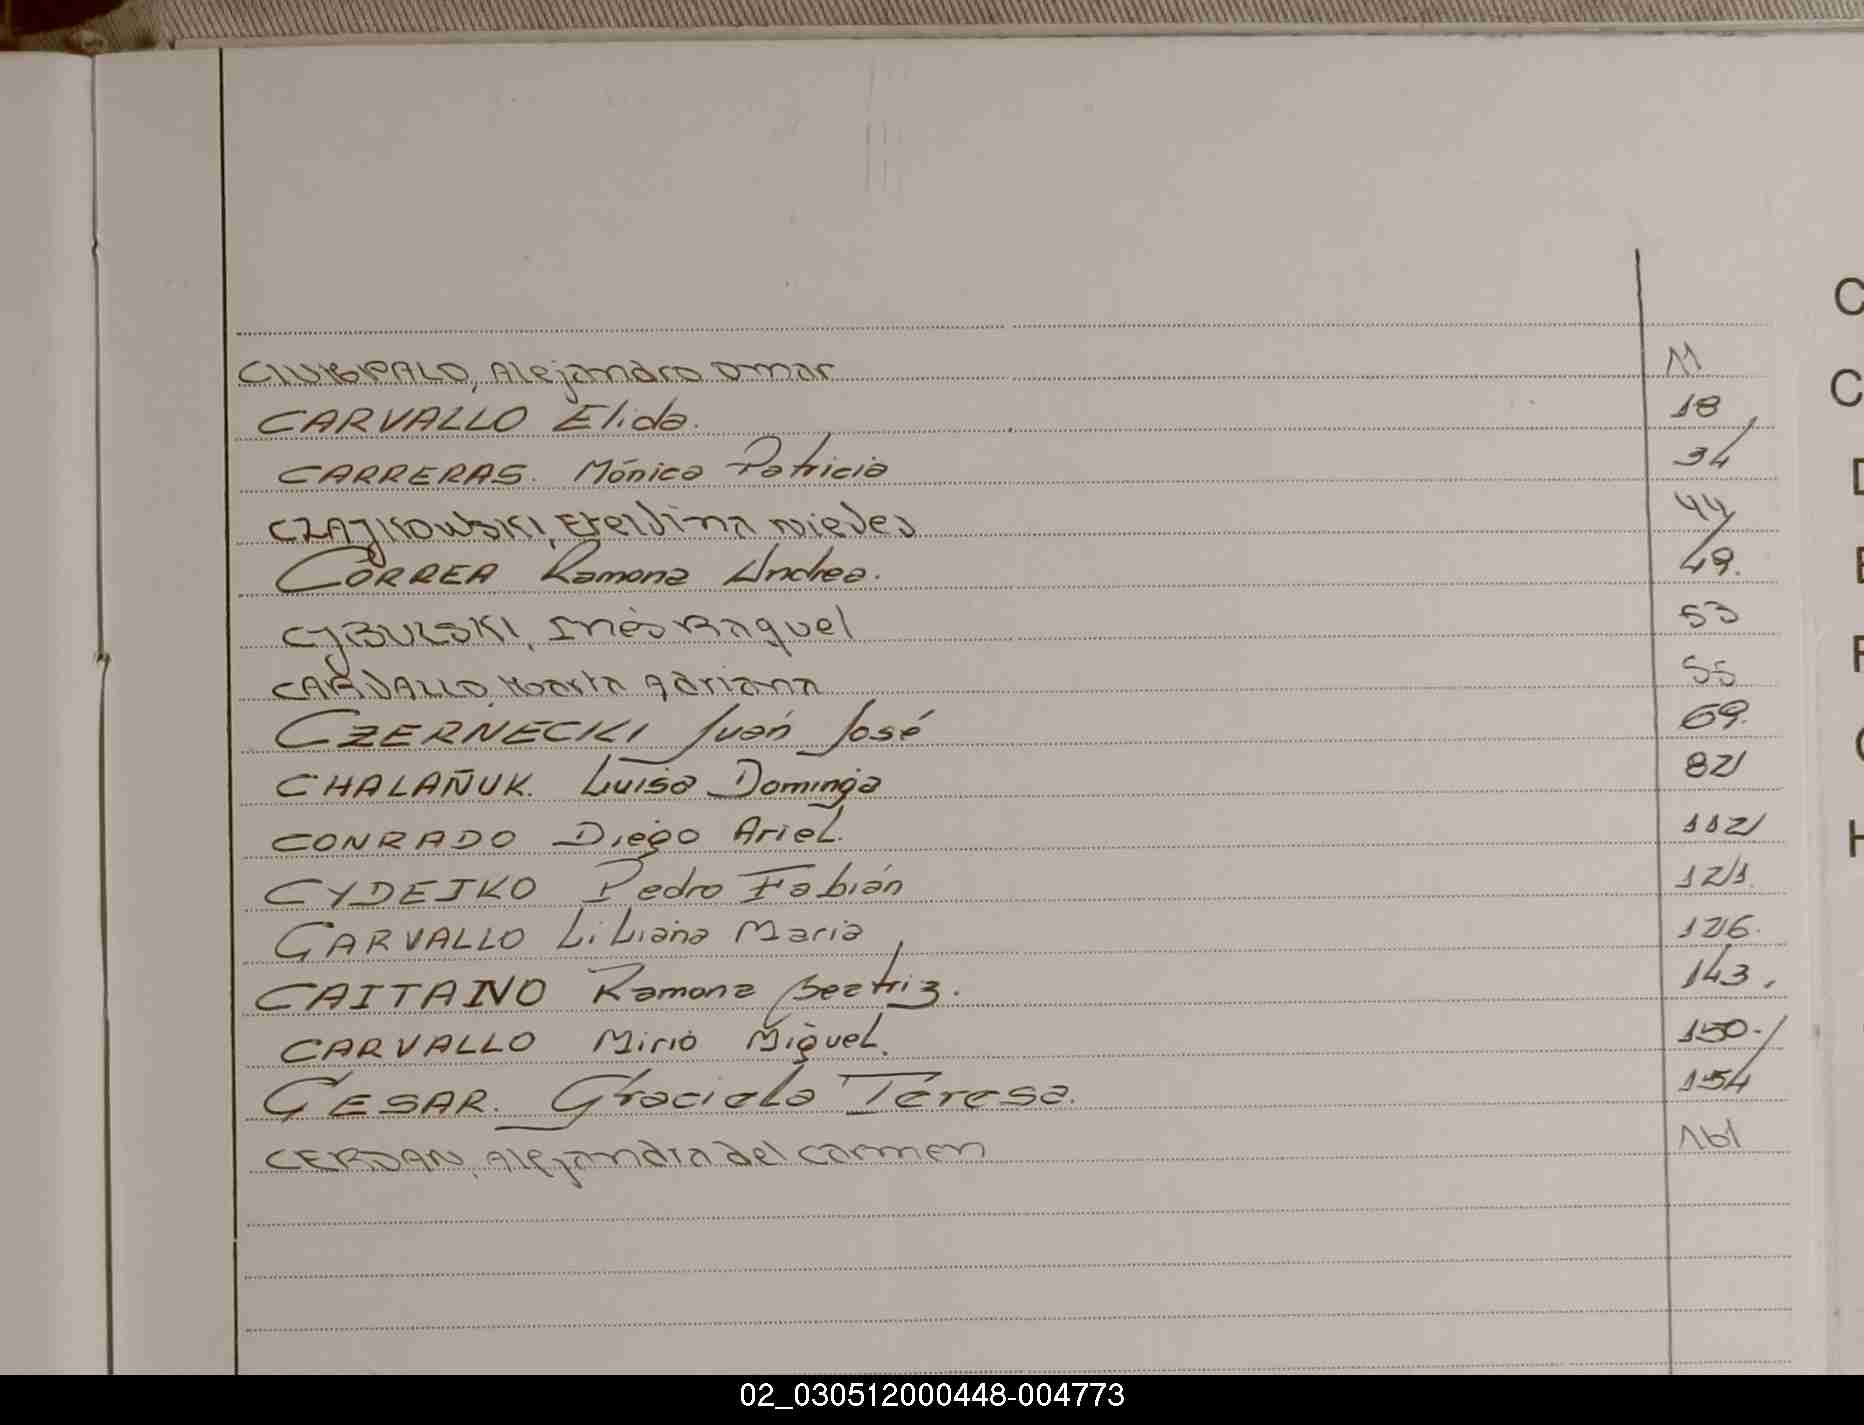 Alejandro Omar 11
CARVALLO Elida. 18
CARRERAS. Mónica Patricia 34
CZAJKOWSKI, Etelvina Nieves 44
CORREA Ramona Andrea. 49.
CYBULSKI, Inés Raquel 53
CARVALLO, Marta Adriana 55
CZERNECKI Juán José 69.
CHALAÑUK. Luisa Dominga 82
CONRADO Diego Ariel. 112
CYDEJKO Pedro Fabián 121.
CARVALLO Liliana Maria 126.
CAITANO Ramona Beatriz. 143.
CARVALLO Mirio Miguel. 150.
CESAR. Graciela Teresa. 154
CERDAN, Alejandra del Carmen 161
C
C
D
E
F
G
H
02_030512000448-004773